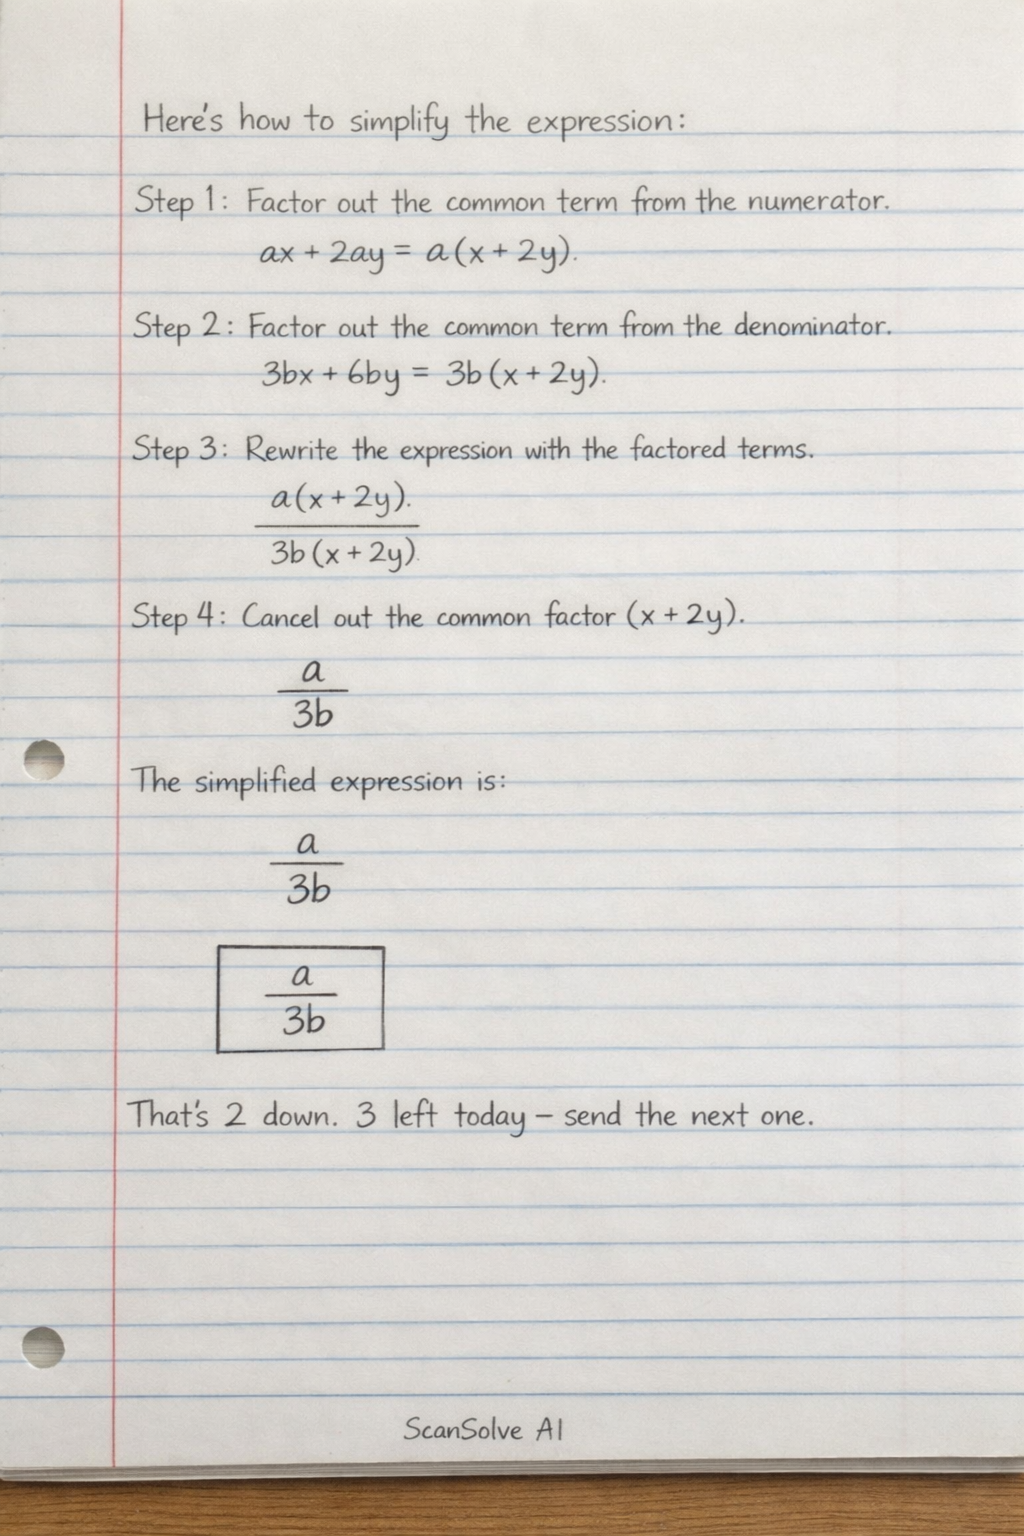 Here's how to simplify the expression:
Step 1: Factor out the common term from the numerator.
ax + 2ay = a(x + 2y).
Step 2: Factor out the common term from the denominator.
3bx + 6by = 3b(x + 2y).
Step 3: Rewrite the expression with the factored terms.
a(x + 2y).
3b(x + 2y).
Step 4: Cancel out the common factor (x + 2y).
a
3b
The simplified expression is:
a
3b
a
3b
That's 2 down. 3 left today – send the next one.
ScanSolve AI